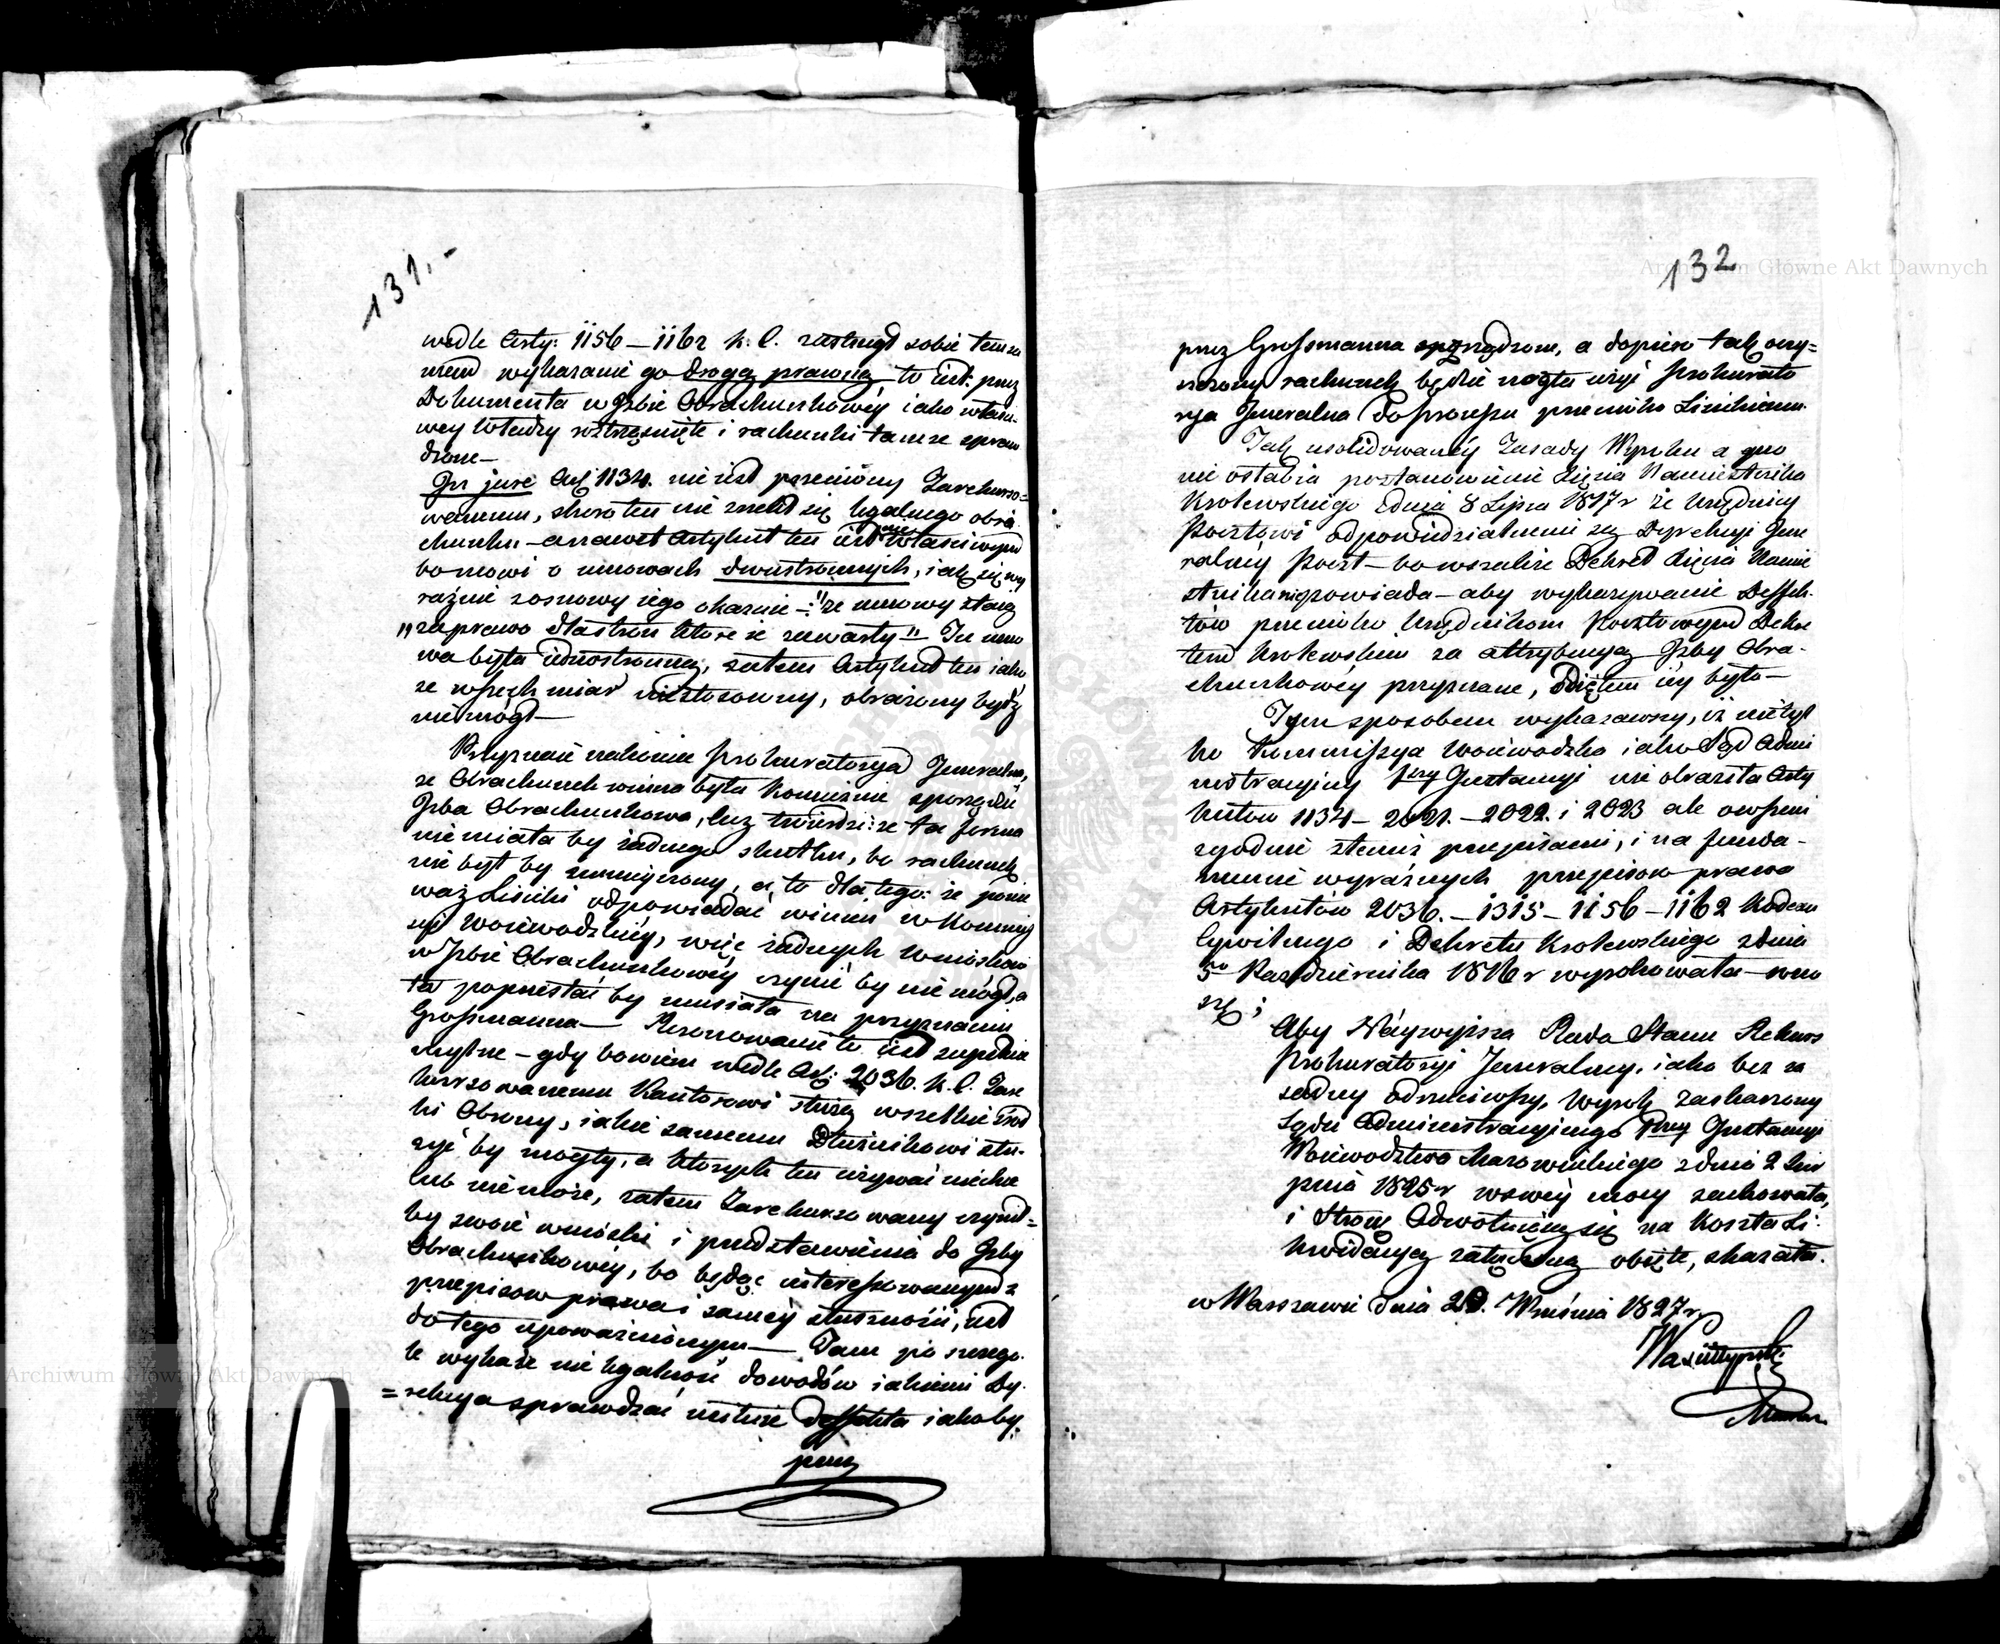 131.-
wedle Arty: 1156 – 1162 K. C. zastrzegł sobie temsa
mem wykazanie go drogą prawną, to iest: przez
Dokumenta w Jzbie Obrachunkowéy iako właści-
wéy Władzy roztrząśnięte i rachunki tamże spraw
dzone –
In jure Art 1134. nie iest przeciwny Zarekurso=
wanemu, skoro ten nie znalazł się legalnego obra
chunku – a nawet Artykuł ten iest niewłaściwym
bo mowi o umowach dwustronnych, iak się wy
raźnie z osnowy iego okazuie –: "że umowy staią
"za prawo dla stron które ie zawarły" – Tu umo
wa była iednostronną, zatem Artykuł ten iako
ze wszech miar niestosowny, obrażony bydź
nie mógł –
Przyznaie nakoniec Prokuratorya Jeneralna,
że Obrachunek winna była koniecznie sporządzić
Jzba Obrachunkowa, lecz twierdzi: że ta forma
nie miała by żadnego skutku, bo rachunek
nie był by zmnieyszony, a to dla tego: że ponie
waż Lisicki odpowiadać winien w Kommis
syi Woiewódzkiéy, więc żadnych wniosków
w Jzbie Obrachunkowéy czynić by nie mógł, a
ta poprzestać by musiała na przyznaniu
Grossmanna – Rezonowanie to iest zupełnie
mylne – gdy bowiem wedle Art: 2036. K. C. Zare
kursowanemu Kantorowi służą wszelkie środ
ki Obrony, iakie samemu Dłużnikowi słu-
żyć by mogły, a których ten używać niechce
lub nie może, zatem Zarekursowany czynił=
by swoie wnioski i przedstawienia do Jzby
Obrachunkowéy, bo będąc interessowanym z
przepisow prawa i saméy słuszności, iest
do tego upoważnionym – Tam po szczegó-
le wykaże nielegalność dowodów iakiemi Dy-
=rekcya sprawdzać usiłuie deffekta iakoby
przez
132
przez Grossmanna sporządzone, a dopiero tak oczy=
szczony rachunek będzie mogła użyć Prokurato
rya Jeneralna do processu przeciwko Lisickiemu.
Tak usolidowanéy Zasady Wyroku a quo
nie osłabia postanowienie Xięcia Namiestnika
Krolewskiego z dnia 8 Lipca 1817 r że Urzędnicy
Pocztowi odpowiedzialnemi są Dyrekcyi Jene
ralnéy Poczt – bo wszakże Dekret Xięcia Namie
stnika niepowiada – aby wykazywanie Deffek-
tów przeciwko Urzędnikom Pocztowym Dekre
tem Krolewskim za attrybucyą Jzby Obra-
chunkowéy przyznane, odiętem iéy było –
Tym sposobem wykazawszy, iż nietyl
ko Kommissya Woiewódzka iako Sąd Admi
nistracyiny 1széy Instancyi nie obraziła Arty
kułow 1134 – 2021. – 2022. i 2023 ale owszem
zgodnie z temiż przepisami, i na funda-
mencie wyraźnych przepisow prawa
Artykułów 2036. – 1315 – 1156 – 1162 Kodexu
Cywilnego i Dekretu Krolewskiego z dnia
5go Października 1816 r wyrokowała – wno
szę;
Aby Náywyższa Rada Stanu Rekurs
Prokuratoryi Jeneralnéy, iako bez za
sadny odrzuciwszy, Wyrok Zaskarżony
Sądu Administracyinego 1széy Instancyi
Woiewództwa Mazowieckiego z dnia 2 Sier
pnia 1825 r w swéy mocy zachowała,
i Stronę Odwołuiącą się na Koszta Li-
kwidacyą załączoną obięte, skazała.
w Warszawie dnia 20. Września 1827 r.